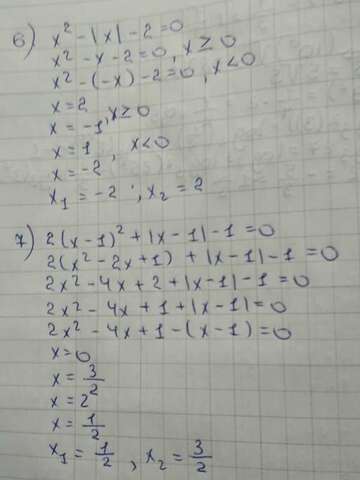 6) x² - |x| - 2 = 0
x² - x - 2 = 0, x ≥ 0
x² - (-x) - 2 = 0, x < 0
x = 2
x = -1, x ≥ 0
x = 1, x < 0
x = -2
x₁ = -2 ; x₂ = 2
7) 2(x - 1)² + |x - 1| - 1 = 0
2(x² - 2x + 1) + |x - 1| - 1 = 0
2x² - 4x + 2 + |x - 1| - 1 = 0
2x² - 4x + 1 + |x - 1| = 0
2x² - 4x + 1 - (x - 1) = 0
x = 0
x = 3/2
x = 2
x = 1/2
x₁ = 1/2, x₂ = 3/2